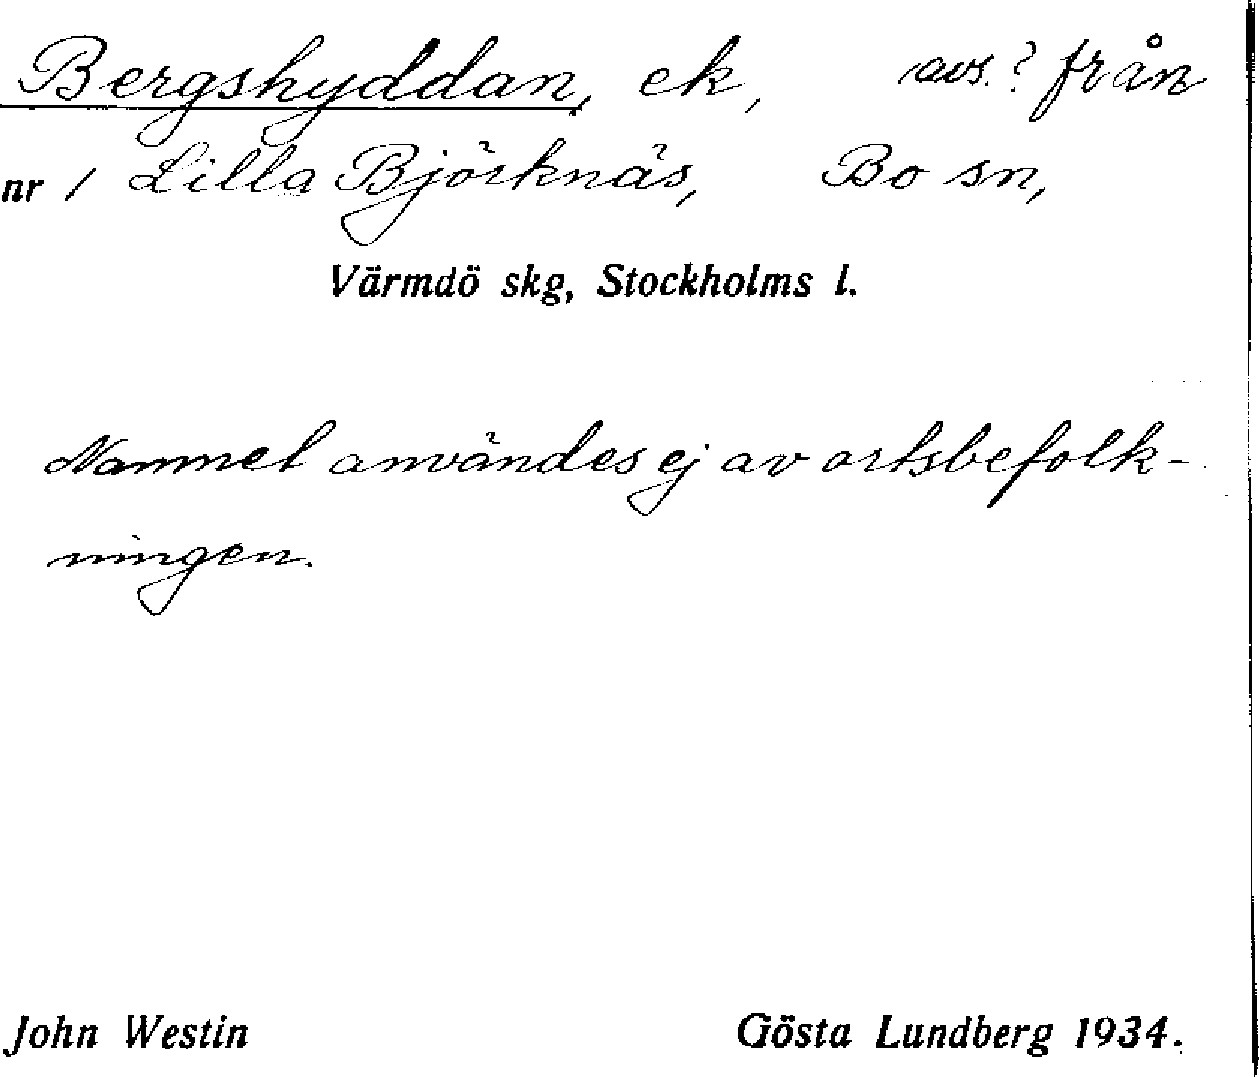 Bergshyddan, ek, avs.? från
nr 1 Lilla Björknäs, Bo sn,
Värmdö skg, Stockholms l.
Namnet användes ej av ortsbefolk-
ningen.
John Westin Gösta Lundberg 1934.